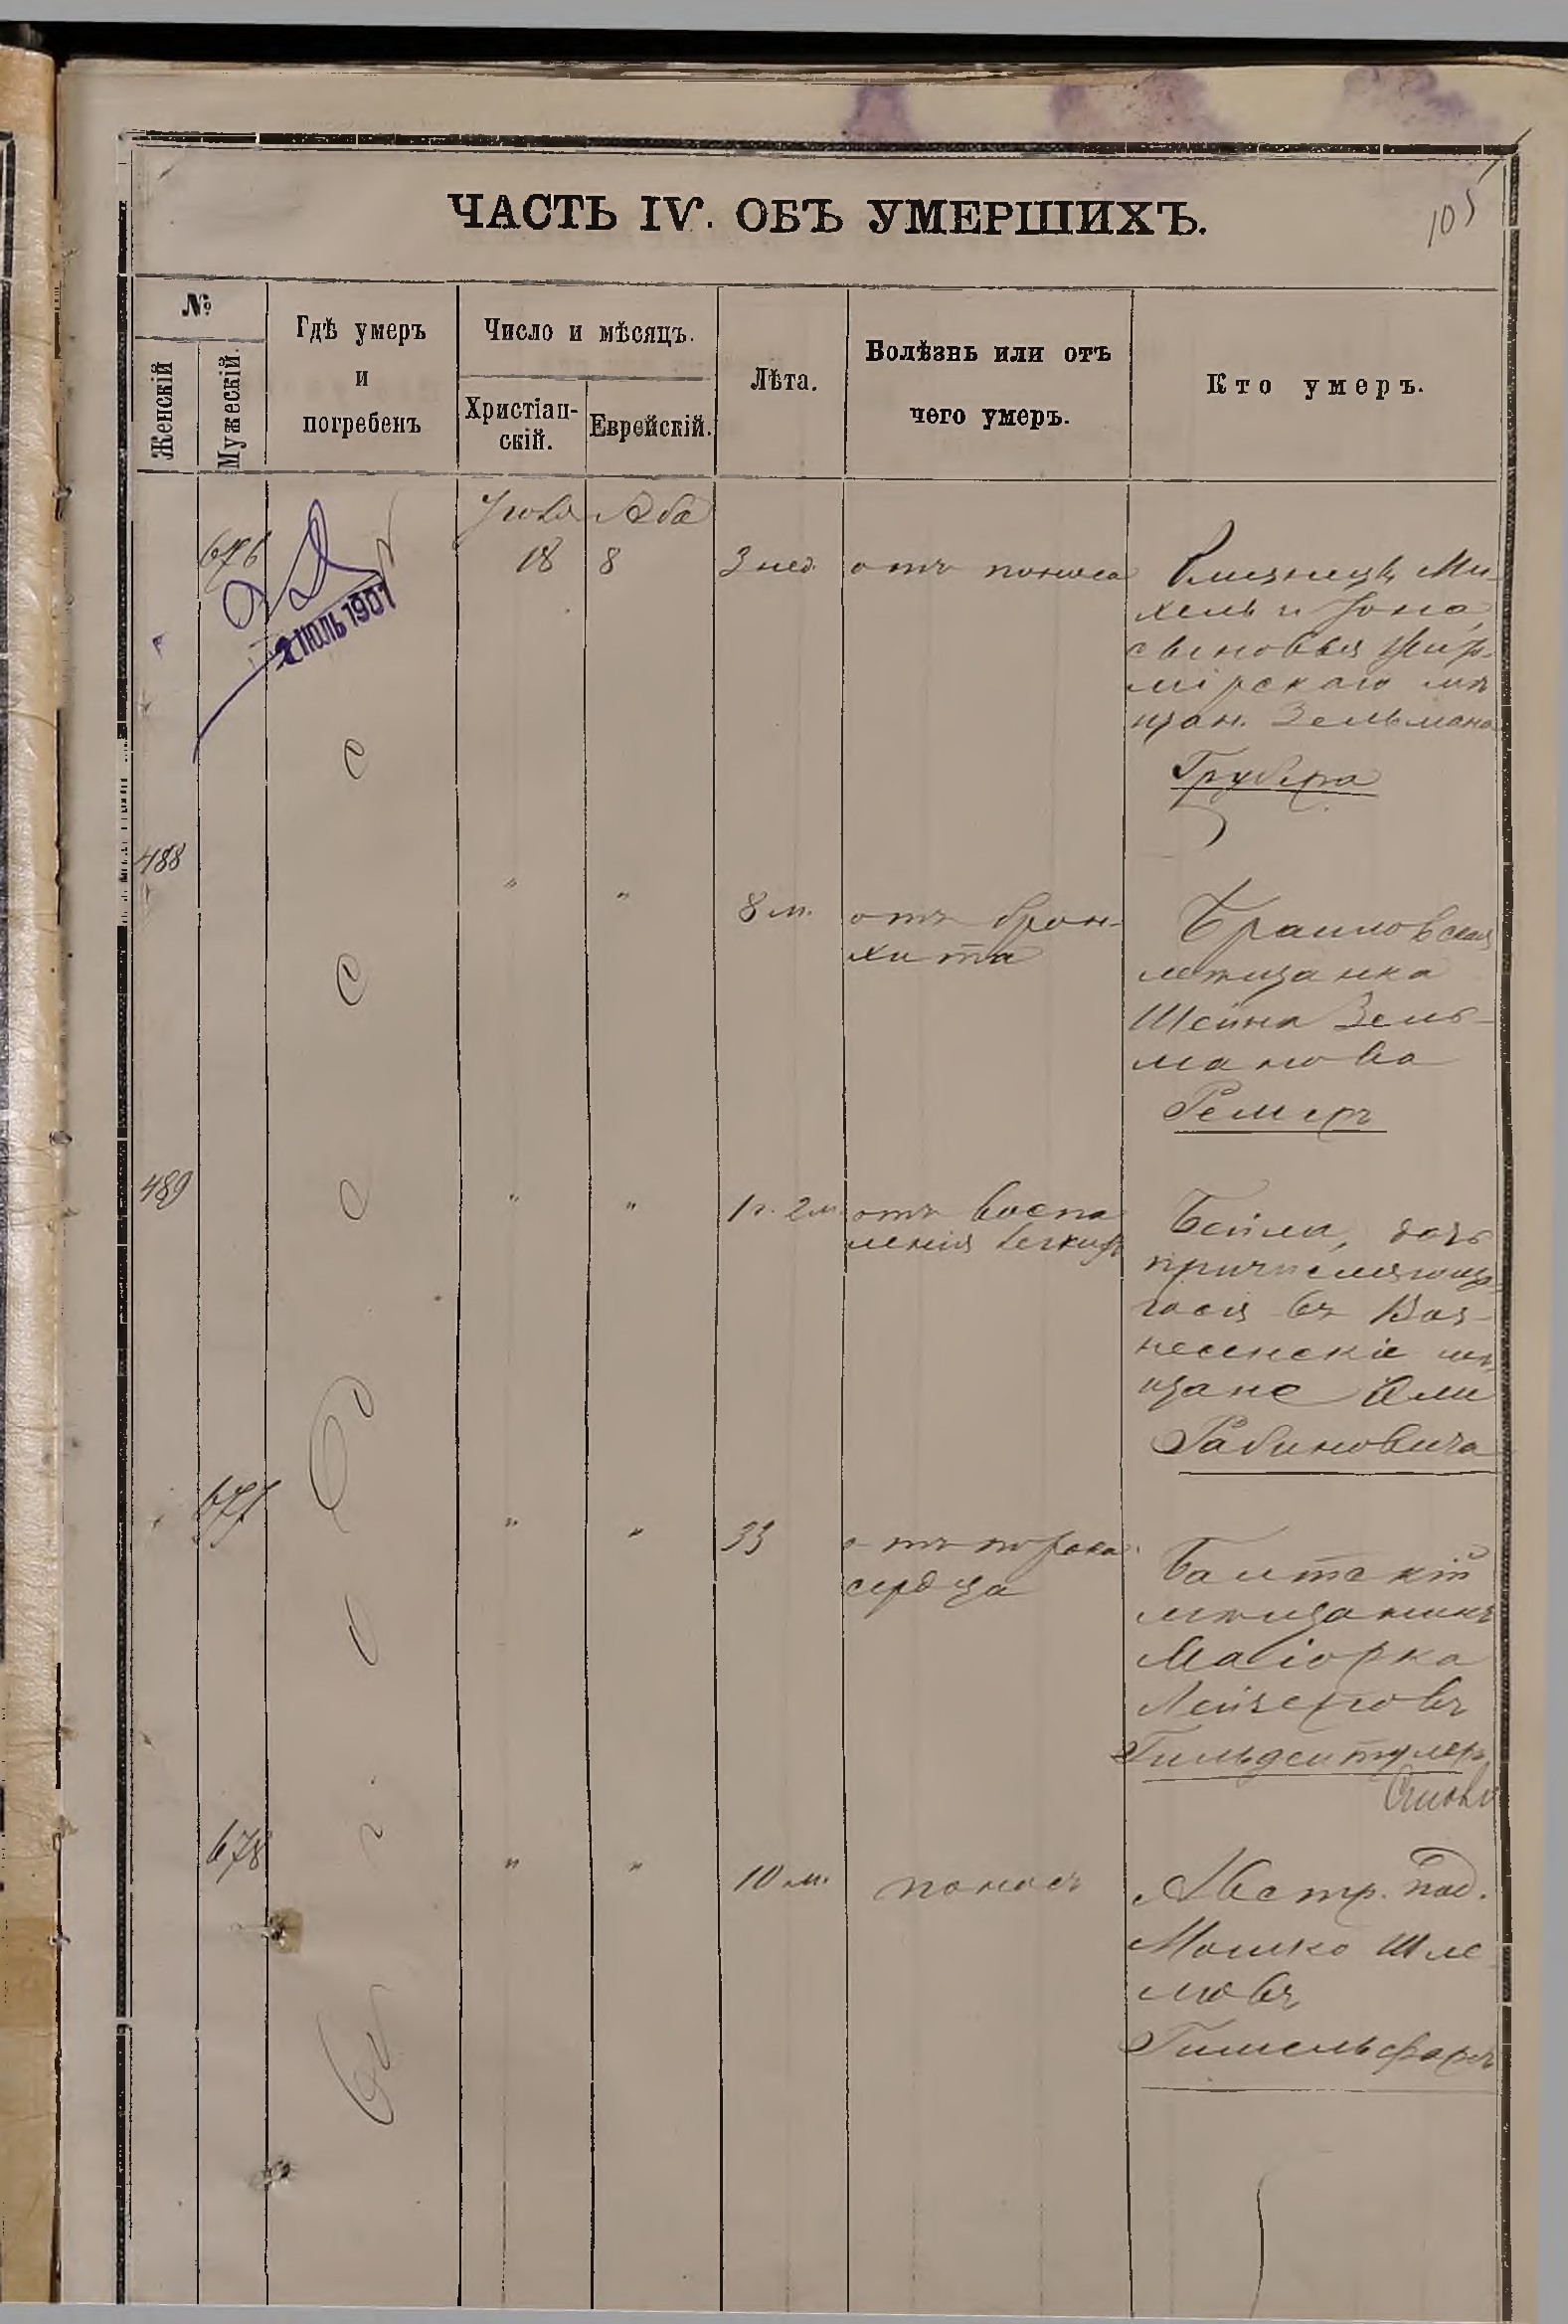 105
ЧАСТЬ IV. ОБЪ УМЕРШИХЪ.
№
Женскій
Мужескій.
Гдѣ умеръ
и
погребенъ
Число и мѣсяцъ.
Христіан-
скій.
Еврейскій.
Лѣта.
Болѣзнь или отъ
чего умеръ.
Кто умеръ.
Іюля Аба
676 18 8 3 нед. отъ поноса
Близнецы Ми-
хель и Іона,
сыновья
мірскаго мѣ
щан. Зельмана
Грубера
2 ІЮЛЬ 1901
488 " " 8 м. отъ брон-
хита
Браиловская
мѣщанка
Шейна Зель-
манова
Ремеръ
489 " " 1 г. 2 м. отъ воспа
ленія легкихъ
Бейла, дочь
причисляющ
гося въ Воз-
несенскіе мѣ
щане
Рабиновича
677 " " 33 отъ порока
сердца
Балтскій
мѣщанинъ
Маіорка
Лейзеровъ
678 " " 10 м. поносъ
Австр. под.
Мошко Шле
мовъ
Гимельфарбъ